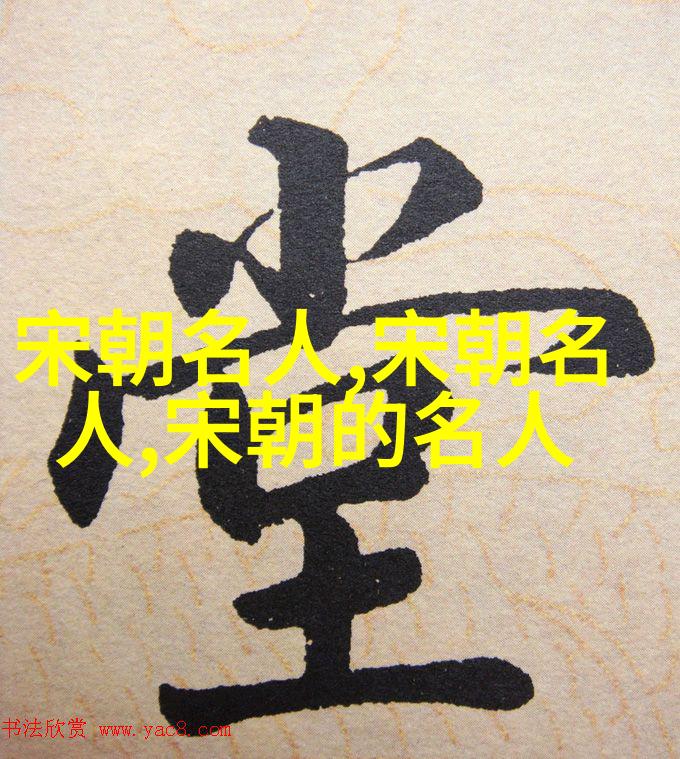 堂
宋朝名人,宋朝名
人,宋朝的名人
书法欣赏 www.yac8.com